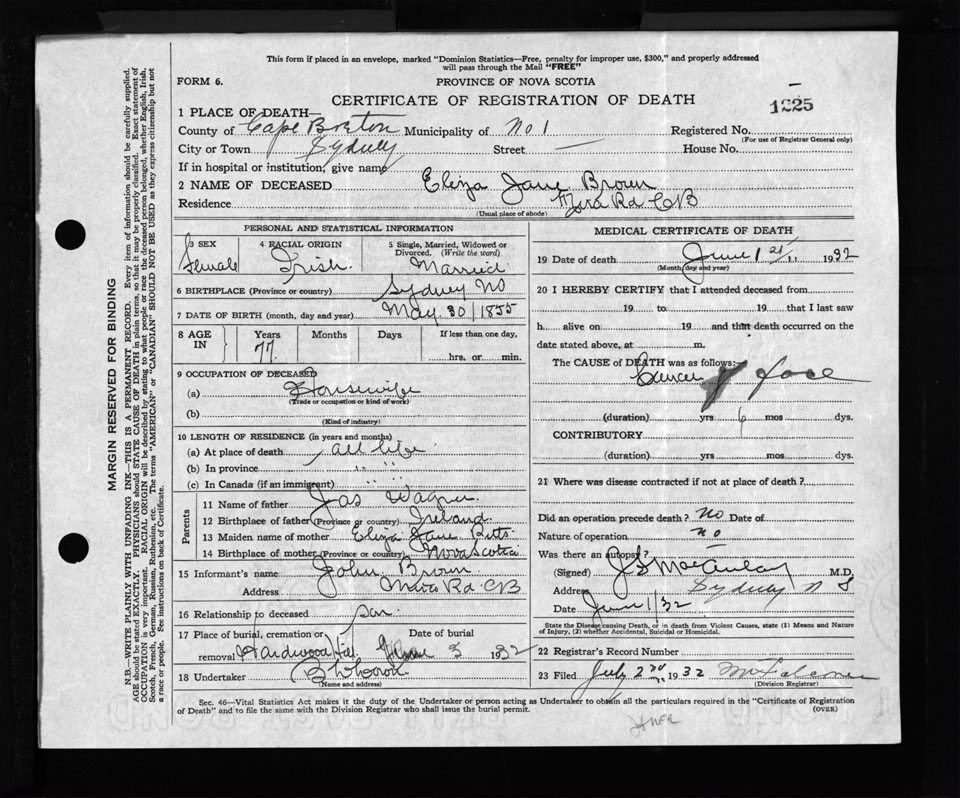 This form if placed in an envelope, marked "Dominion Statistics—Free, penalty for improper use, $300," and properly addressed
will pass through the Mail "FREE"
FORM 6.
PROVINCE OF NOVA SCOTIA
CERTIFICATE OF REGISTRATION OF DEATH
1225
1 PLACE OF DEATH—
County of Cape Breton Municipality of No 1 Registered No.
(For use of Registrar General only)
City or Town Sydney Street — House No.
If in hospital or institution, give name
2 NAME OF DECEASED Eliza Jane Brown
Residence Rd CB
(Usual place of abode)
PERSONAL AND STATISTICAL INFORMATION
3 SEX Female
4 RACIAL ORIGIN Irish.
5 Single, Married, Widowed or Divorced. (Write the word) Married
6 BIRTHPLACE (Province or country) Sydney NS
7 DATE OF BIRTH (month, day and year) May 30/1855
8 AGE IN Years 77 Months Days If less than one day, hrs. or min.
9 OCCUPATION OF DECEASED
(a) Housewife
(Trade or occupation or kind of work)
(b)
(Kind of industry)
10 LENGTH OF RESIDENCE (in years and months)
(a) At place of death all life
(b) In province " "
(c) In Canada (if an immigrant) " "
Parents
11 Name of father Jas Wagner.
12 Birthplace of father (Province or country) Ireland
13 Maiden name of mother Eliza Jane
14 Birthplace of mother (Province or country) Nova Scotia
15 Informant's name John Brown
Address Rd CB
16 Relationship to deceased son
17 Place of burial, cremation or removal Hardwood Hill Date of burial 3 1932
18 Undertaker
(Name and address)
MEDICAL CERTIFICATE OF DEATH
19 Date of death June 1st 1932
(Month, day and year)
20 I HEREBY CERTIFY that I attended deceased from
19 to 19 that I last saw
h alive on 19 and that death occurred on
date stated above, at m.
The CAUSE of DEATH was as follows:
Cancer of face
(duration) yrs 6 mos dys.
CONTRIBUTORY
(duration) yrs mos dys.
21 Where was disease contracted if not at place of death?
Did an operation precede death? No Date of
Nature of operation no
Was there an autopsy?
(Signed) MacAulay M.D.
Address Sydney N S
Date June 1/32
State the Disease causing Death, or in death from Violent Causes, state (1) Means and Nature
of Injury, (2) whether Accidental, Suicidal or Homicidal.
22 Registrar's Record Number
23 Filed July 2nd 1932
(Division Registrar)
Sec. 46—Vital Statistics Act makes it the duty of the Undertaker or person acting as Undertaker to obtain all the particulars required in the "Certificate of Registration
of Death" and to file the same with the Division Registrar who shall issue the burial permit.
(OVER)
MARGIN RESERVED FOR BINDING
N.B.—WRITE PLAINLY WITH UNFADING INK—THIS IS A PERMANENT RECORD. Every item of information should be carefully supplied.
AGE should be stated EXACTLY. PHYSICIANS should STATE CAUSE OF DEATH in plain terms, so that it may be properly classified. Exact statement of
OCCUPATION is very important. RACIAL ORIGIN will be described by stating to what people or race the deceased person belonged, whether English, Irish,
Scotch, French, German, Russian, Ruthenian, etc. The terms "AMERICAN" or "CANADIAN" SHOULD NOT BE USED as they express citizenship but not
a race or people. See instructions on back of Certificate.